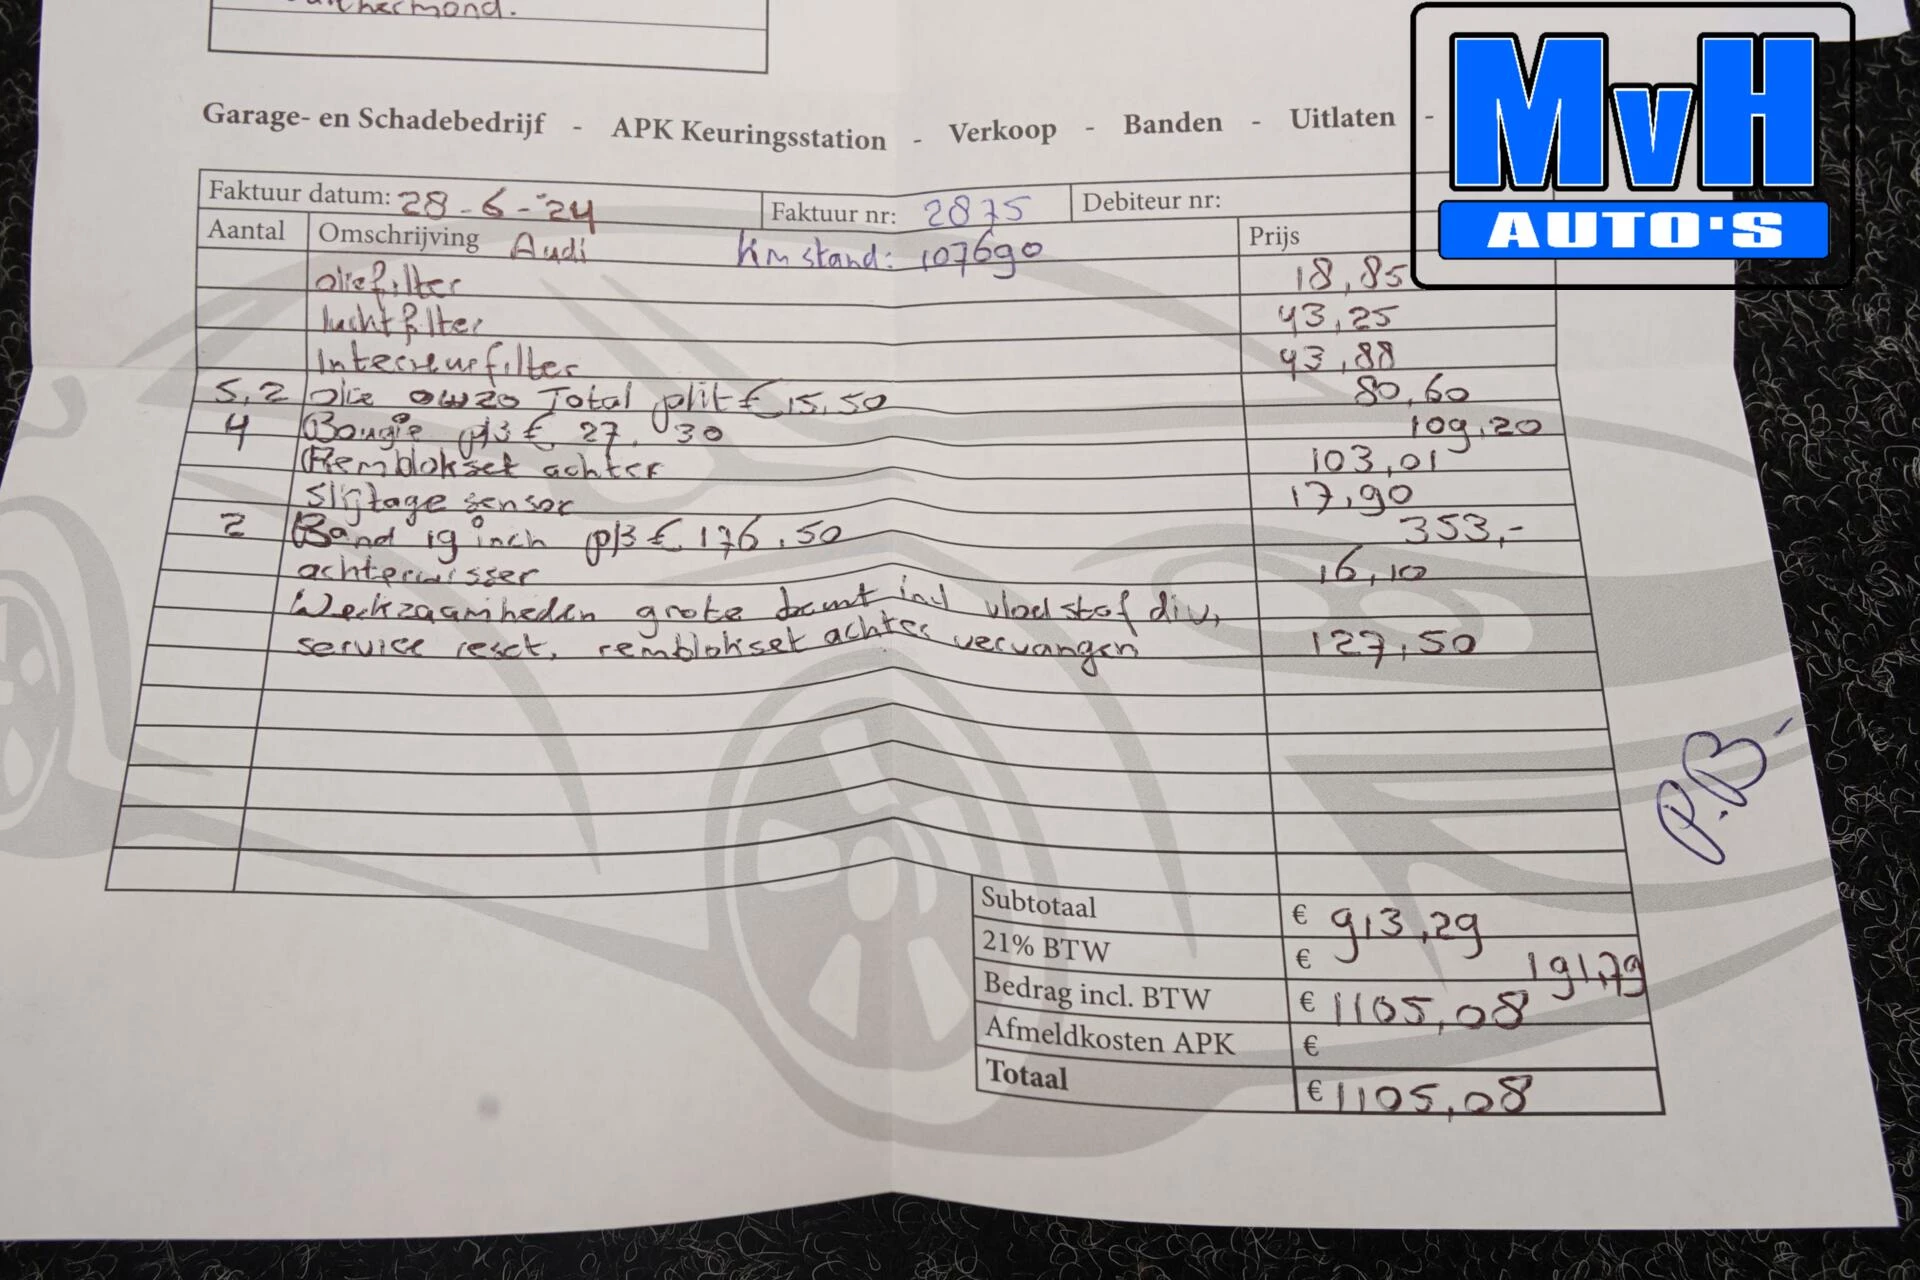 MvH
AUTO'S
Garage- en Schadebedrijf - APK Keuringsstation - Verkoop - Banden - Uitlaten -
Faktuur datum: 28-6-'24 Faktuur nr: 2875 Debiteur nr:
Aantal Omschrijving Audi Km stand: 107690 Prijs
oliefilter 18,85
luchtfilter 43,25
Interieurfilter 43,88
5,2 Olie 0W20 Total p/lit € 15,50 80,60
4 Bougie p/3 € 27,30 109,20
Remblokset achter 103,01
Slijtage sensor 17,90
2 Band 19 inch p/3 € 176,50 353,-
achterwisser 16,10
Werkzaamheden grote beurt incl vloeistof div,
service reset, remblokset achter vervangen 127,50
P.B.
Subtotaal € 913,29
21% BTW € 191,79
Bedrag incl. BTW € 1105,08
Afmeldkosten APK €
Totaal € 1105,08